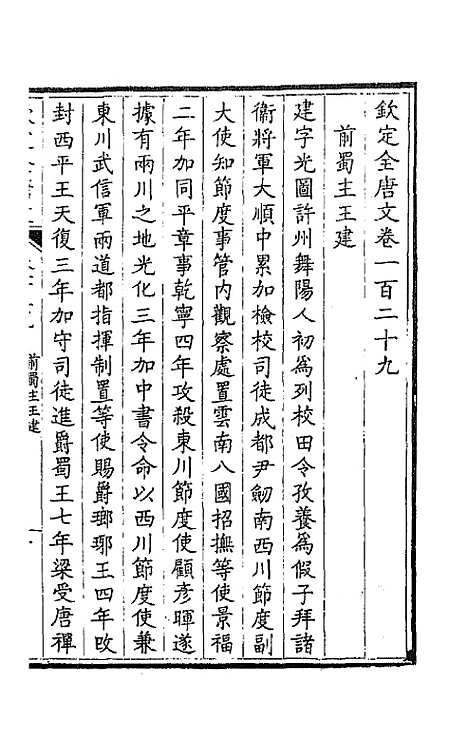 欽定全唐文卷一百二十九
前蜀主王建
建字光圖許州舞陽人初為列校田令孜養為假子拜諸
衞將軍大順中累加檢校司徒成都尹劒南西川節度副
大使知節度事管內觀察處置雲南八國招撫等使景福
二年加同平章事乾寧四年攻殺東川節度使顧彥暉遂
據有兩川之地光化三年加中書令命以西川節度使兼
東川武信軍兩道都指揮制置等使賜爵瑯琊王四年改
封西平王天復三年加守司徒進爵蜀王七年梁受唐禪
前蜀主王建